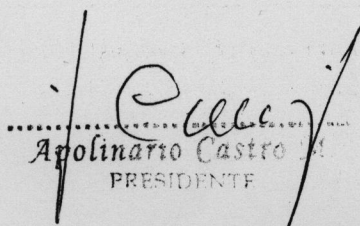 Apolinario Castro M
PRESIDENTE